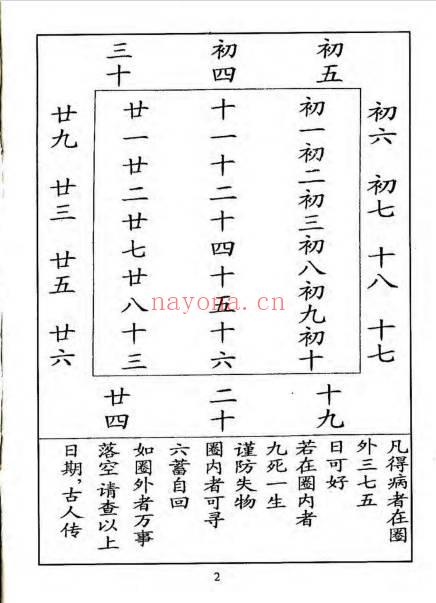 初五
初四
三十
初六 初七 十八 十七
初一初二初三初八初九初十
十一十二十四十五十六
廿一廿二廿七廿八十三
廿九 廿三 廿五 廿六
十九
二十
廿四
凡得病者在圈
外三七五
日可好
若在圈内者
九死一生
谨防失物
圈内者可寻
六蓄自回
如圈外者万事
落空请查以上
日期,古人传
nayona.cn
2